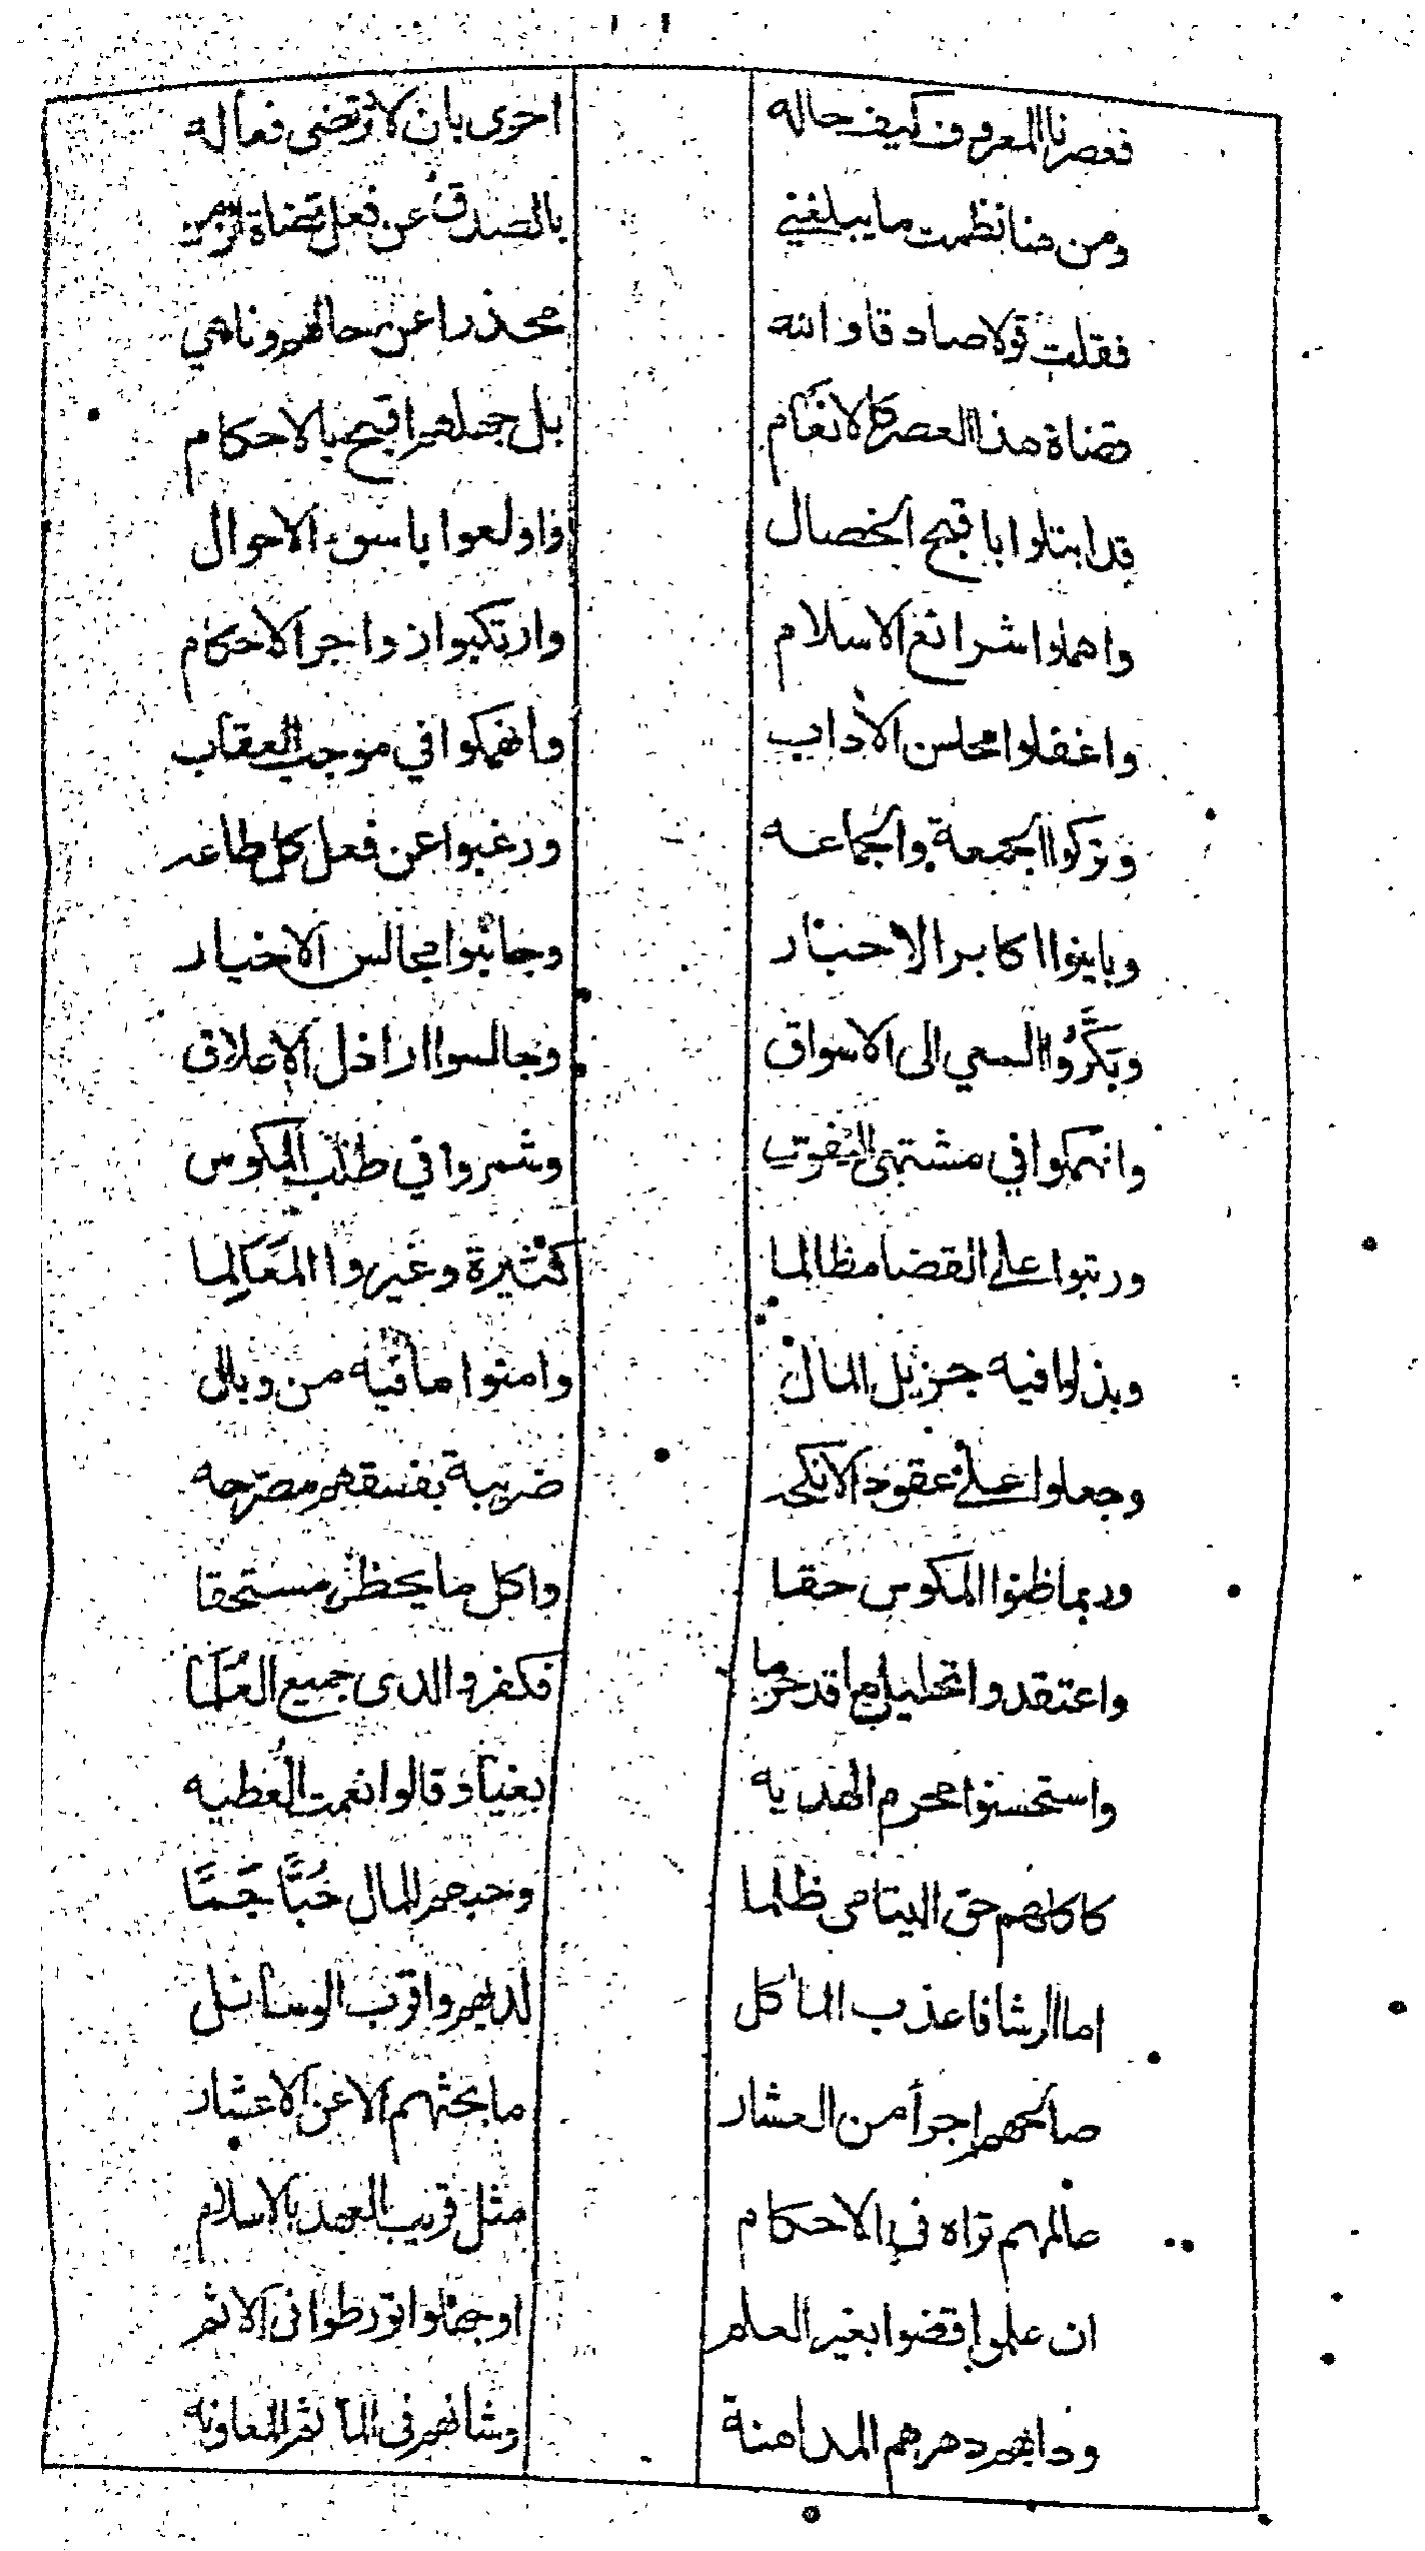 فعصرنا المعروف كيف حاله احرى بان لا ترتضى فعاله
ومن هنا نظمت ما يبلغني بالصدق عن فعل قضاة الزمن
فقلت قولا صادقا والله محذرا عن حالهم وناهي
قضاة هذا العصر كالانعام بل جهلهم اقبح بالاحكام
قد ابتلوا باقبح الخصال واولعوا باسوء الاحوال
واهملوا شرائع الاسلام وارتكبوا زواجر الاحكام
واغفلوا محاسن الاداب وانهمكوا في موجب العقاب
وتركوا الجمعة والجماعه ورغبوا عن فعل كل طاعه
وباينوا اكابر الاحبار وجانبوا مجالس الاخيار
وبَكَّرُوا السعي الى الاسواق وجالسوا اراذل الاعلاق
وانهمكوا في مشتهى النفوس وشمروا في طلب المكوس
ورتبوا على القضا مظالما كثيرة وغيروا المَعَالِما
وبذلوا فيه جزيل المال وامنوا ما فيه من وبال
وجعلوا على عقود الانكحه ضريبة بفسقهم مصرحه
وربما ظنوا المكوس حقا واكل ما يحظر مستحقا
واعتقدوا تحليل ما قد حرما فكفروا لدى جميع العُلَمَا
واستحسنوا محرم الهديه بغيا وقالوا نعمت العطيه
كاكلهم حق اليتامى ظلما وحبهم للمال حُبًّا جَمًّا
اما الرشا فاعذب المأكل لديهم واقرب الوسائل
صالحهم اجرأ من العشار ما بحثهم الا عن الاعشار
عالمهم تراه في الاحكام مثل قريب العهد بالاسلام
ان علموا قضوا بغير العلم او جهلوا تورطوا في الاثم
ودابهم دهرهم المداهنة وشانهم في المآثم المعاونه